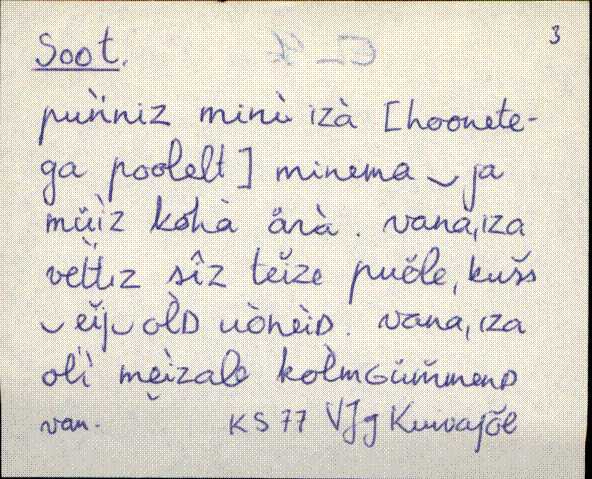 3
Soot.
puǹ̀niz minù izà [hoonete-
ga poolelt] minema ‿ ja
müìz kohà ärà. vana,iza
vet̀tiz sîz teĭze puĕle, kušs
‿ eĭj‿ òlD uòneiD. vana,iza
olì mèizale kòlmGüm̆menD
van. KS 77 VJg Kuivajõe